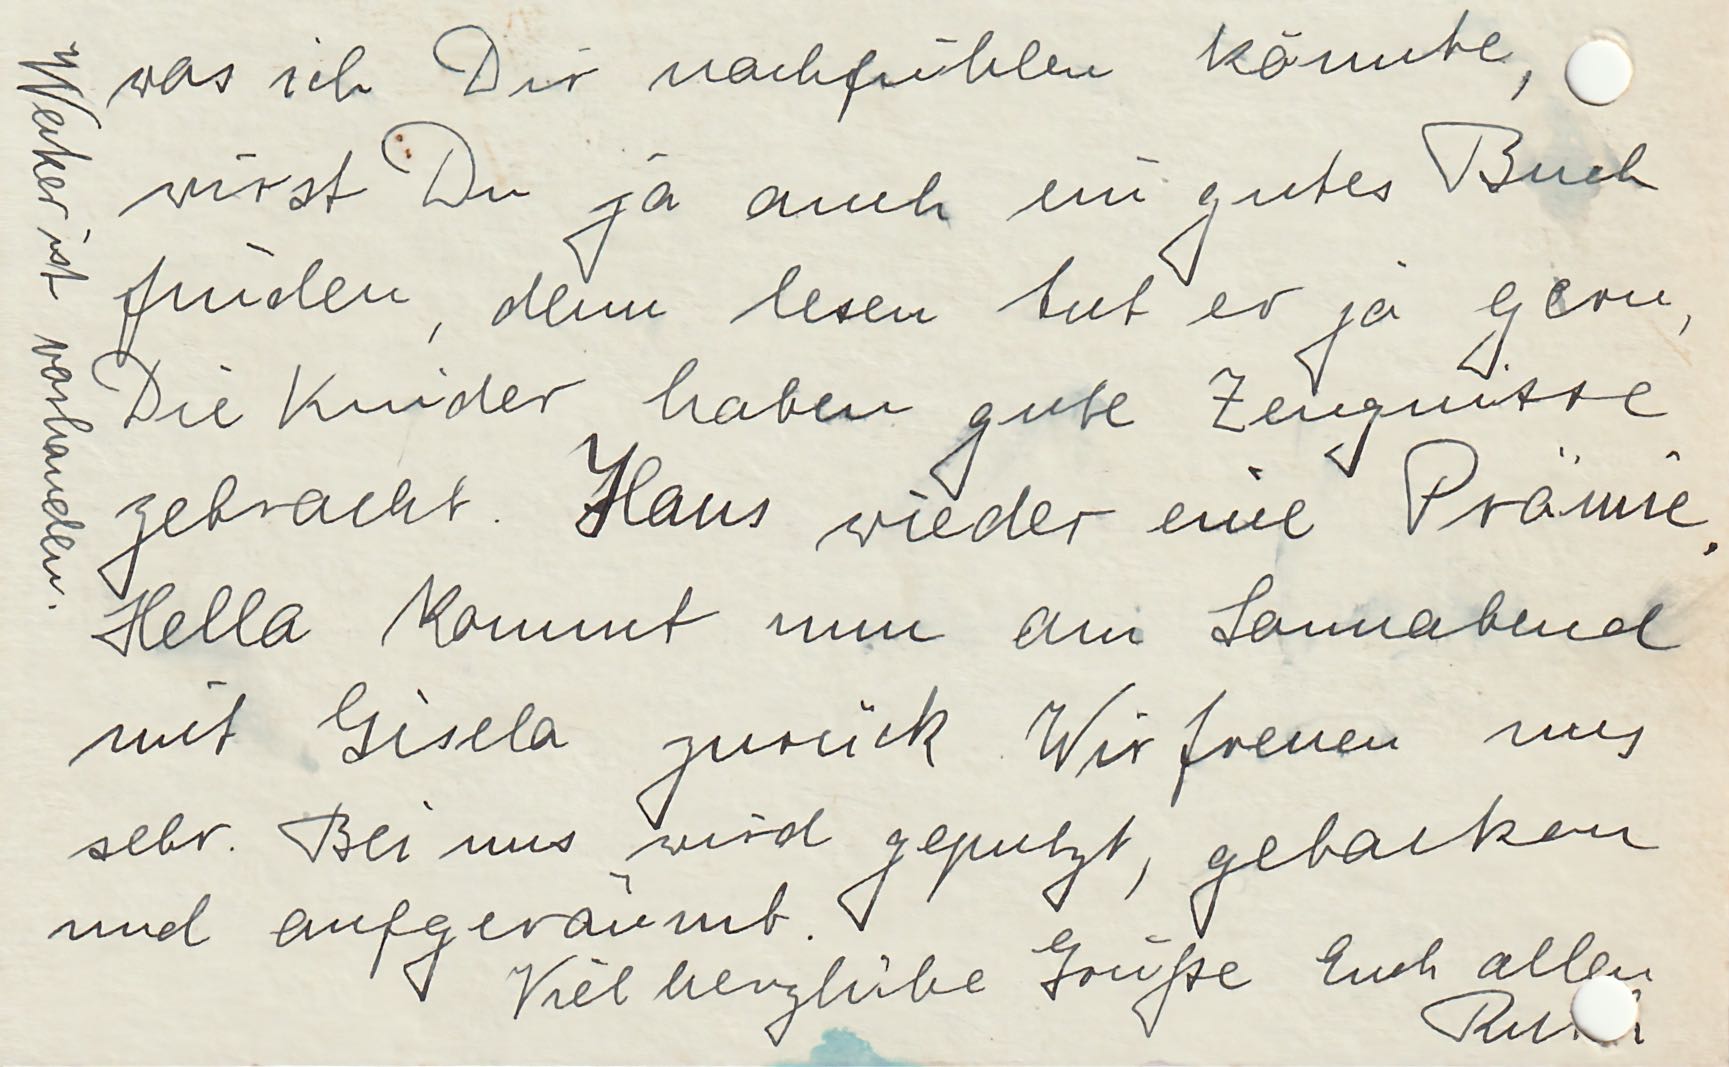 was ich Dir nachfühlen könnte,
wirst Du ja auch ein gutes Buch
finden, denn lesen tut er ja gern,
Die Kinder haben gute Zeugnisse
gebracht. Hans wieder eine Prämie.
Hella kommt nun am Sonnabend
mit Gisela zurück Wir freuen uns
sehr. Bei uns wird geputzt, gebacken
und aufgeräumt.
Viel herzliche Grüße Euch allen
Ruth
Wecker ist vorhanden.